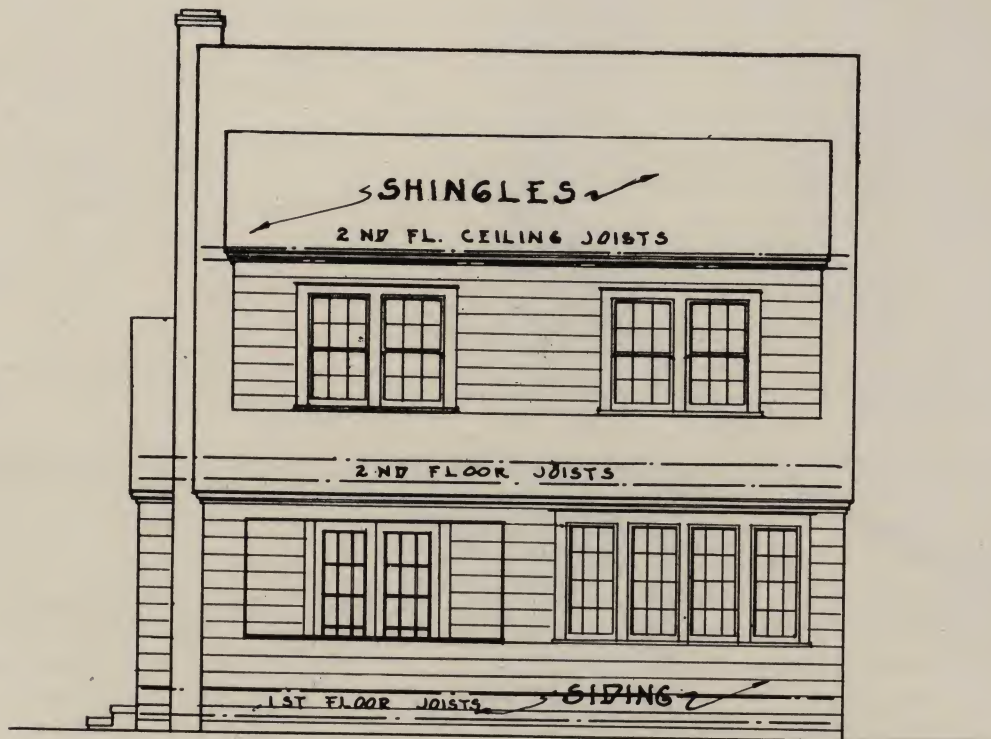 SHINGLES
2 ND FL. CEILING JOISTS
2 ND FLOOR JOISTS
1ST FLOOR JOISTS SIDING